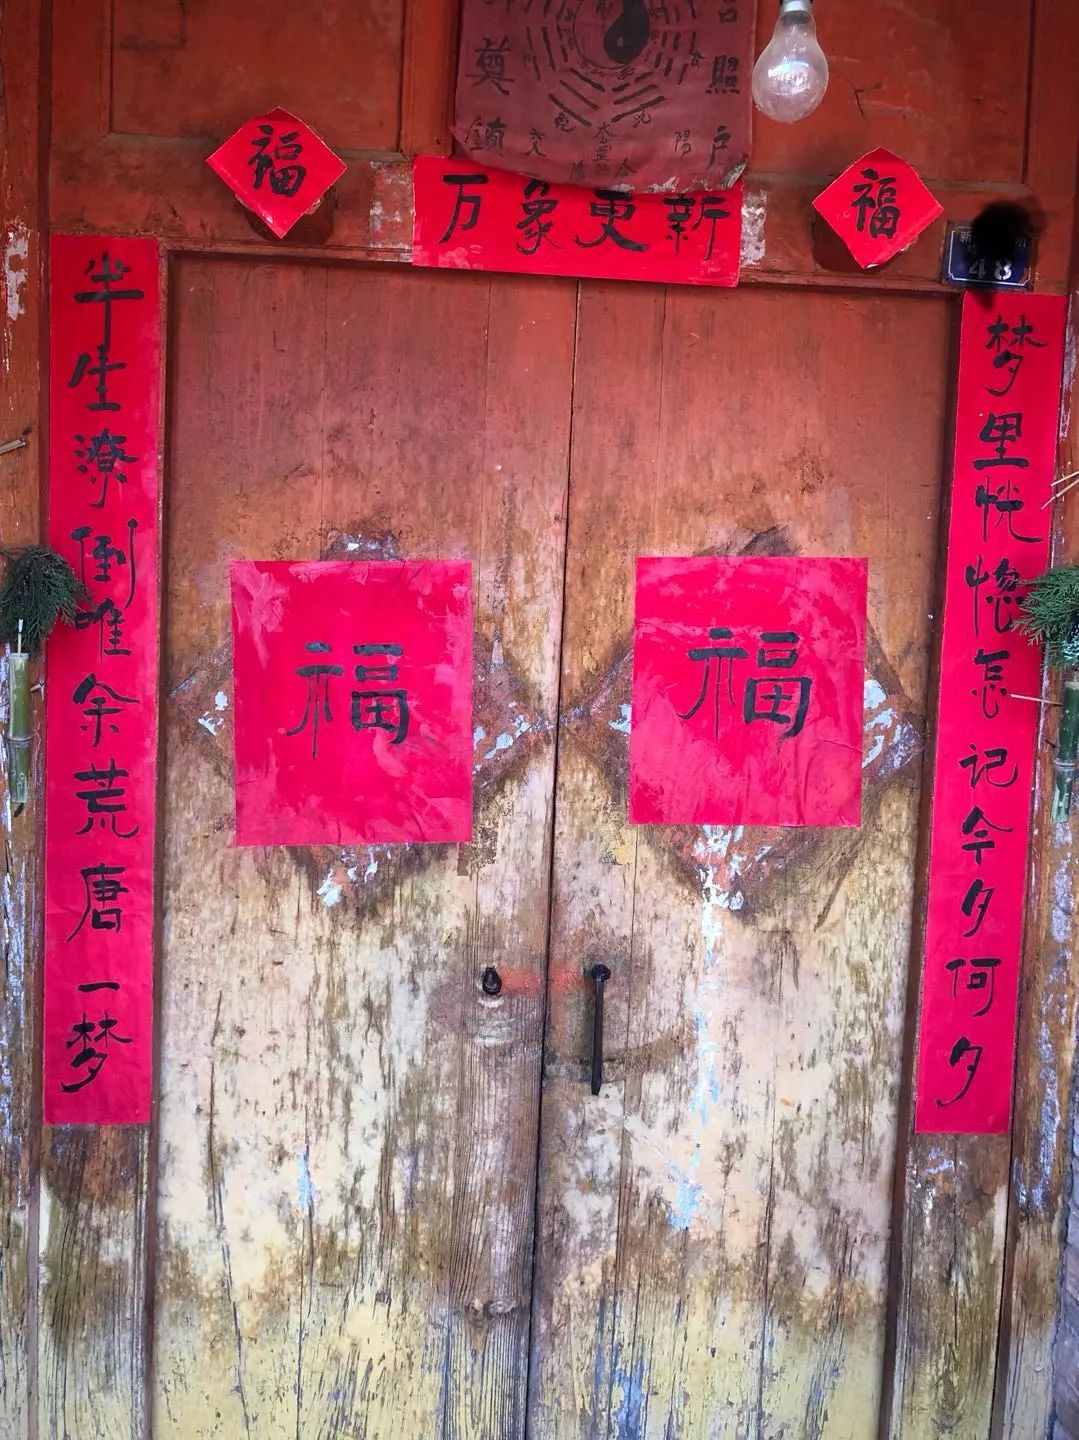 奠
镇
照
户
福
万象更新
福
48
半生潦倒唯余荒唐一梦
梦里恍惚怎记今夕何夕
福
福